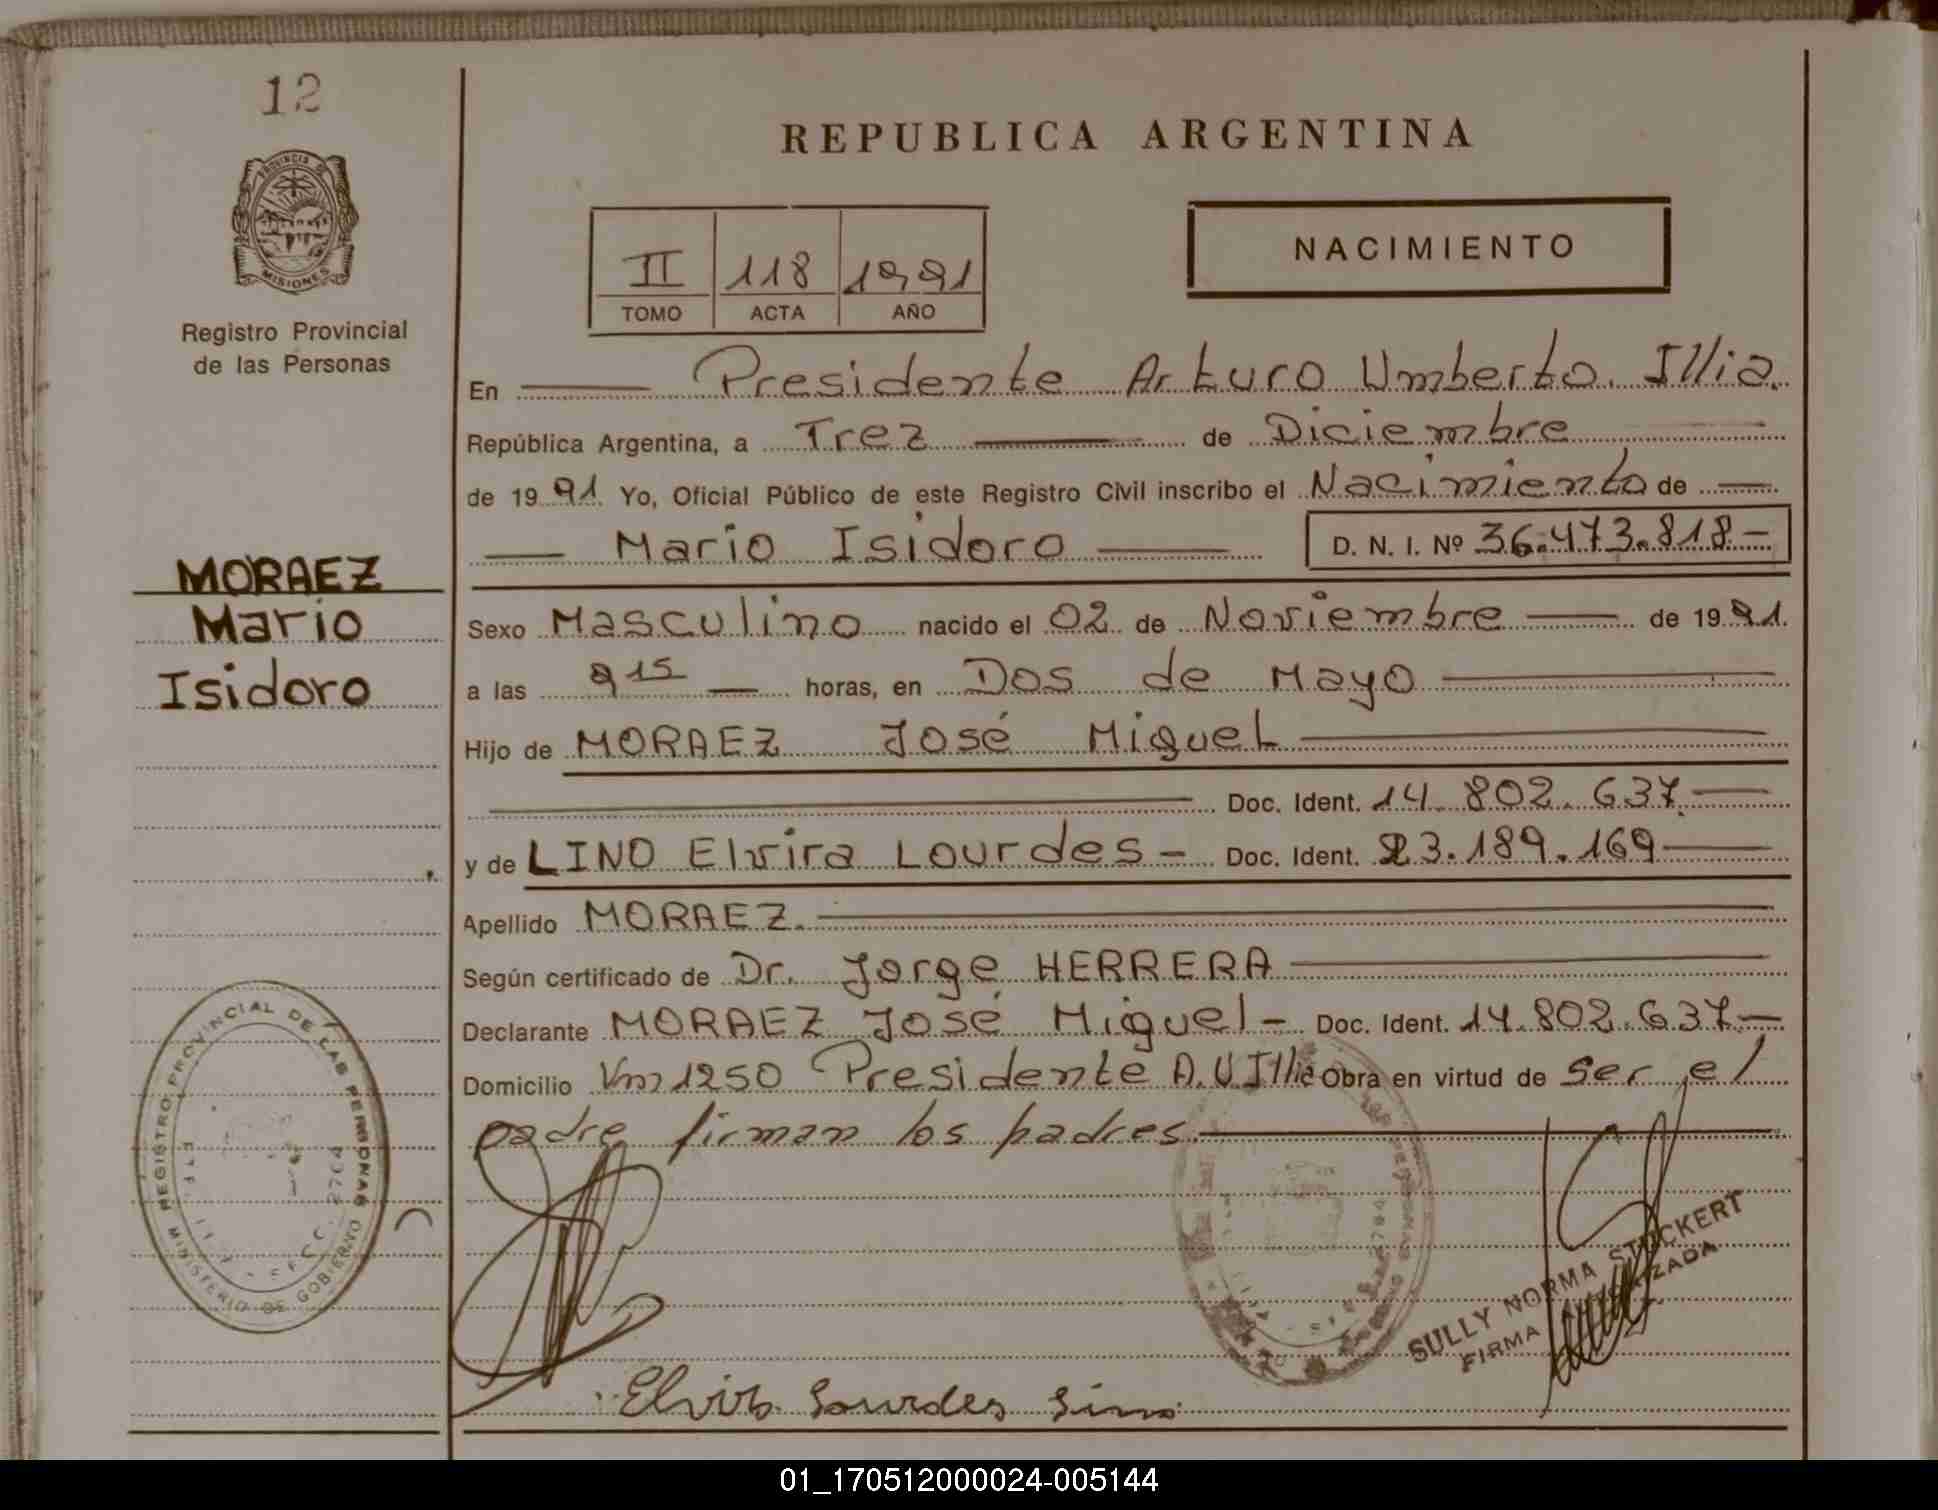 12
PROVINCIA DE
MISIONES
Registro Provincial
de las Personas
MORAEZ
Mario
Isidoro
REGISTRO PROVINCIAL DE LAS PERSONAS
MINISTERIO DE GOBIERNO
REPUBLICA ARGENTINA
II 118 1991
TOMO ACTA AÑO
NACIMIENTO
En Presidente Arturo Umberto Illia.
República Argentina, a Trez de Diciembre
de 1991 Yo, Oficial Público de este Registro Civil inscribo el Nacimiento de
Mario Isidoro D. N. I. Nº 36.473.818-
Sexo Masculino nacido el 02 de Noviembre de 1991.
a las 9 15 horas, en Dos de Mayo
Hijo de MORAEZ José Miguel
Doc. Ident. 14.802.637.
y de LINO Elvira Lourdes - Doc. Ident. 23.189.169
Apellido MORAEZ.
Según certificado de Dr. Jorge HERRERA
Declarante MORAEZ José Miguel - Doc. Ident. 14.802.637.-
Domicilio Km 1250 Presidente A.U Illia Obra en virtud de ser el
padre firman los padres.
SULLY NORMA STOCKERT
FIRMA AUTORIZADA
Elvira Lourdes Lino
01_170512000024-005144